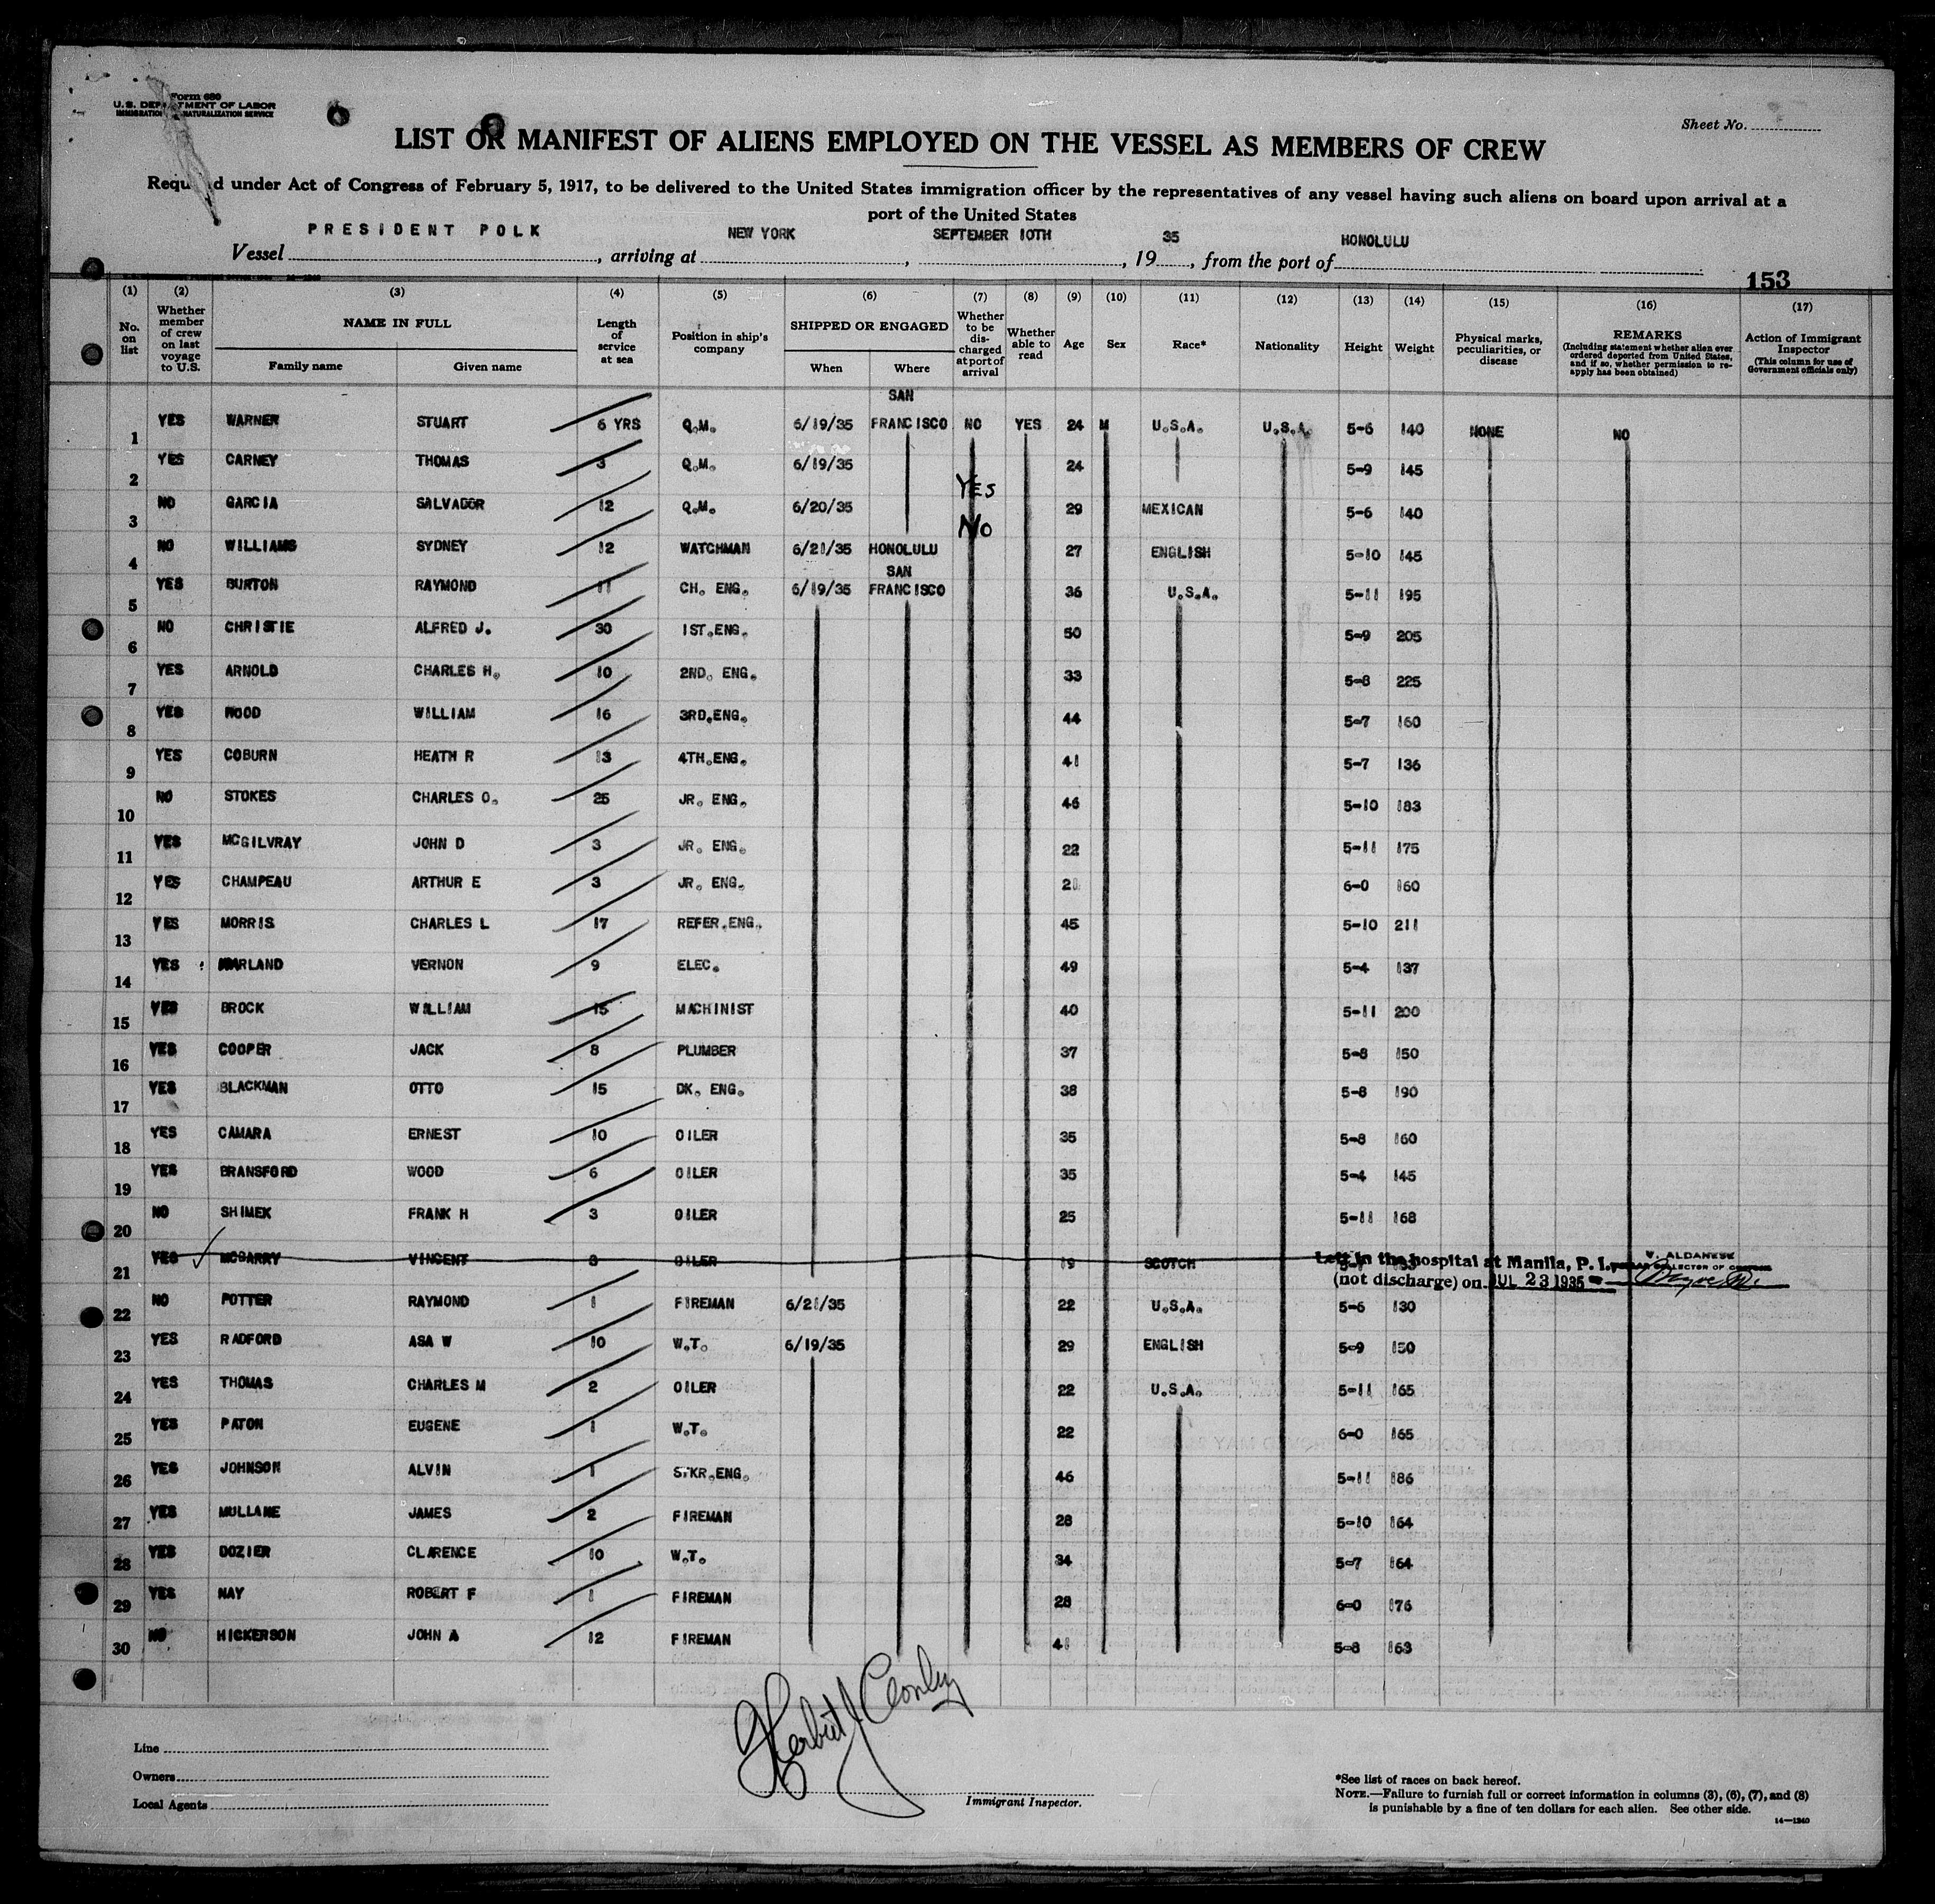 Form 680
U. S. DEPARTMENT OF LABOR
IMMIGRATION NATURALIZATION SERVICE
Sheet No.
LIST OR MANIFEST OF ALIENS EMPLOYED ON THE VESSEL AS MEMBERS OF CREW
Required under Act of Congress of February 5, 1917, to be delivered to the United States immigration officer by the representatives of any vessel having such aliens on board upon arrival at a
port of the United States
Vessel PRESIDENT POLK, arriving at NEW YORK, SEPTEMBER 10TH, 1935, from the port of HONOLULU
153
(1) (2) (3) (4) (5) (6) (7) (8) (9) (10) (11) (12) (13) (14) (15) (16) (17)
No. on list
Whether member of crew on last voyage to U.S.
NAME IN FULL
Family name Given name
Length of service at sea
Position in ship's company
SHIPPED OR ENGAGED
When Where
Whether to be discharged at port of arrival
Whether able to read
Age
Sex
Race*
Nationality
Height
Weight
Physical marks, peculiarities, or disease
REMARKS
(Including statement whether alien ever ordered deported from United States, and if so, whether permission to reapply has been obtained)
Action of Immigrant Inspector
(This column for use of Government officials only)
SAN
1 YES WARNER STUART 6 YRS Q.M. 6/19/35 FRANCISCO NO YES 24 M U.S.A. U.S.A. 5-6 140 NONE NO
2 YES CARNEY THOMAS 3 Q.M. 6/19/35 24 5-9 145
YES
3 NO GARCIA SALVADOR 12 Q.M. 6/20/35 29 MEXICAN 5-6 140
NO
4 NO WILLIAMS SYDNEY 12 WATCHMAN 6/21/35 HONOLULU 27 ENGLISH 5-10 145
SAN
5 YES BURTON RAYMOND 11 CH. ENG. 6/19/35 FRANCISCO 36 U.S.A. 5-11 195
6 NO CHRISTIE ALFRED J. 30 1ST.ENG. 50 5-9 205
7 YES ARNOLD CHARLES H. 10 2ND. ENG. 33 5-8 225
8 YES WOOD WILLIAM 16 3RD.ENG. 44 5-7 160
9 YES COBURN HEATH R 13 4TH.ENG. 41 5-7 136
10 NO STOKES CHARLES O. 25 JR. ENG. 46 5-10 183
11 YES MCGILVRAY JOHN D 3 JR. ENG. 22 5-11 175
12 YES CHAMPEAU ARTHUR E 3 JR. ENG. 21 6-0 160
13 YES MORRIS CHARLES L 17 REFER.ENG. 45 5-10 211
14 YES VERNON 9 ELEC. 49 5-4 137
15 YES BROCK WILLIAM 15 MACHINIST 40 5-11 200
16 YES COOPER JACK 8 PLUMBER 37 5-8 150
17 YES BLACKMAN OTTO 15 DK. ENG. 38 5-8 190
18 YES CAMARA ERNEST 10 OILER 35 5-8 160
19 YES BRANSFORD WOOD 6 OILER 35 5-4 145
20 NO SHIMEK FRANK H 3 OILER 25 5-11 168
21 YES MCGARRY VINCENT 3 OILER 19 SCOTCH Left in the hospital at Manila, P. I. V. ALDANESE
(not discharge) on JUL 23 1935
22 NO POTTER RAYMOND 1 FIREMAN 6/21/35 22 U.S.A. 5-6 130
23 YES RADFORD ASA W 10 W.T. 6/19/35 29 ENGLISH 5-9 150
24 YES THOMAS CHARLES M 2 OILER 22 U.S.A. 5-11 165
25 YES PATON EUGENE 1 W.T. 22 6-0 165
26 YES JOHNSON ALVIN 1 S.KR.ENG. 46 5-11 186
27 YES MULLANE JAMES 2 FIREMAN 28 5-10 164
28 YES DOZIER CLARENCE 10 W.T. 34 5-7 164
29 YES NAY ROBERT F 1 FIREMAN 28 6-0 176
30 NO HICKERSON JOHN A 12 FIREMAN 41 5-8 163
Herbert J Conley
Line
Owners
Local Agents
Immigrant Inspector.
*See list of races on back hereof.
NOTE.—Failure to furnish full or correct information in columns (3), (6), (7), and (8)
is punishable by a fine of ten dollars for each alien. See other side.
14—1240